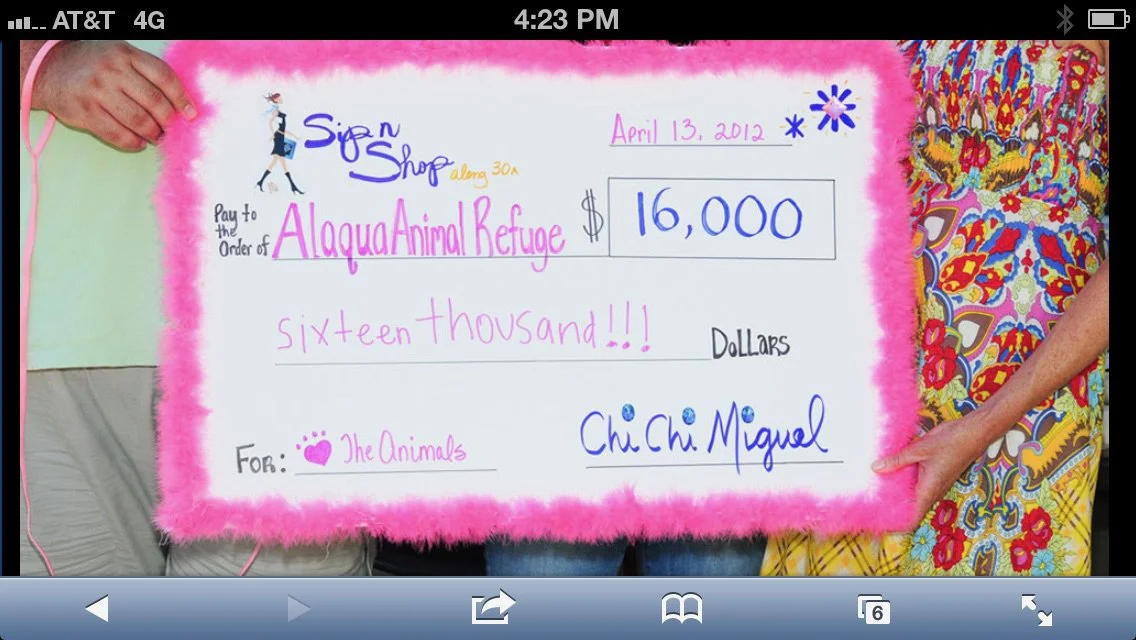 AT&T 4G 4:23 PM
Sip n
Shop along 30A
April 13, 2012
Pay to
the
Order of Alaqua Animal Refuge $ 16,000
sixteen thousand!!! DOLLARS
FOR: The Animals
Chi Chi Miguel
6